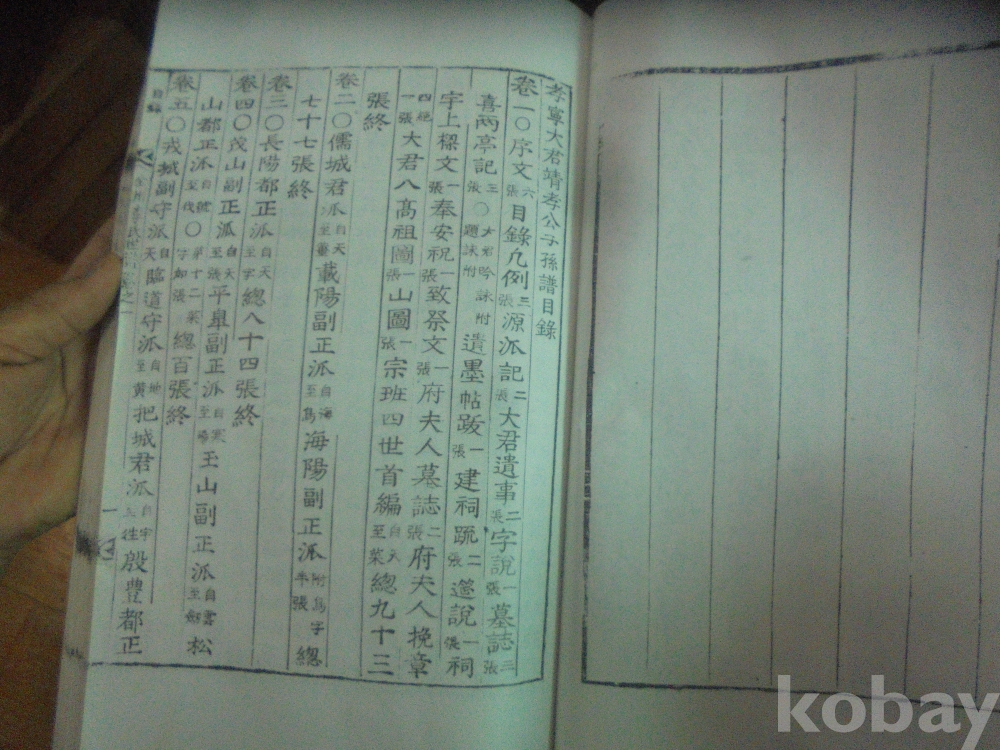 孝寧大君靖孝公子孫譜目錄
卷一〇序文六張目錄凡例三張源派記二張大君遺事二張字說一張墓誌三張
喜兩亭記三張〇大君吟詠附題詠附遺墨帖跋一張建祠䟽二張遷說一張祠
宇上樑文一張奉安祝一張致祭文一張府夫人墓誌二張府夫人挽章
四絕一張大君八高祖圖一張山圖一張宗班四世首編自天至菜總九十三
張終
卷二〇儒城君派自天至 載陽副正派自海至爲海陽副正派附爲字半張總
七十七張終
卷三〇長陽都正派自天至字總八十四張終
卷四〇茂山副正派自天至張平皐副正派自寒至陽玉山副正派自雲至劒松
山都正派自號至 〇第十二菜字卸張總百張終
卷五〇戎城副守派自天臨道守派自地至黃把城君派自宇 殷豊都正
目錄
一
kobay